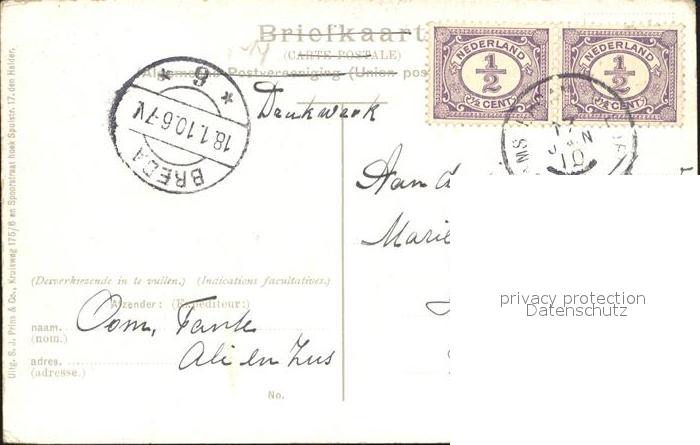 Briefkaart
(CARTE POSTALE)
Algemeene Postvereeniging (Union post
Drukwerk
NEDERLAND NEDERLAND
1/2 1/2
½ CENT ½ CENT
* 6 *
18.1.10.6-7V
BREDA
17
JAN
10
Aan d
Marie
privacy protection
Datenschutz
(Desverkiezende in te vullen.) (Indications facultatives.)
Afzender: (Expediteur:)
naam. Oom, Tante
(nom.)
adres. Ali en Zus
(adresse.)
No.
Uitg. S. J. Prim & Co., Kruisweg 175/6 en Spoorstraat hoek Spuistr. 17. den Helder.